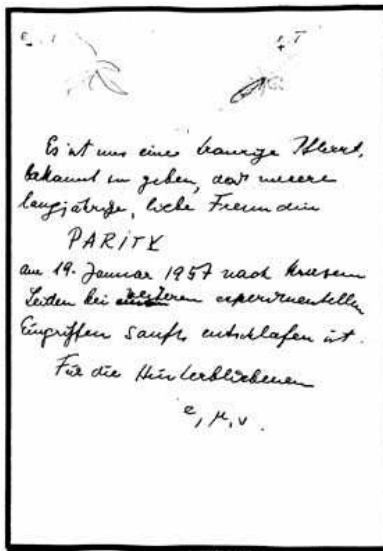 Es ist uns eine traurige Pflicht,
bekannt zu geben, daß unsere
langjährige, liebe Freundin
PARITY
am 19. Januar 1957 nach kurzem
Leiden bei weiteren experimentellen
Eingriffen sanft entschlafen ist.
Für die Hinterbliebenen
e, μ, ν.